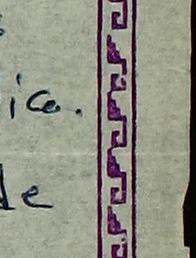 ice.
de